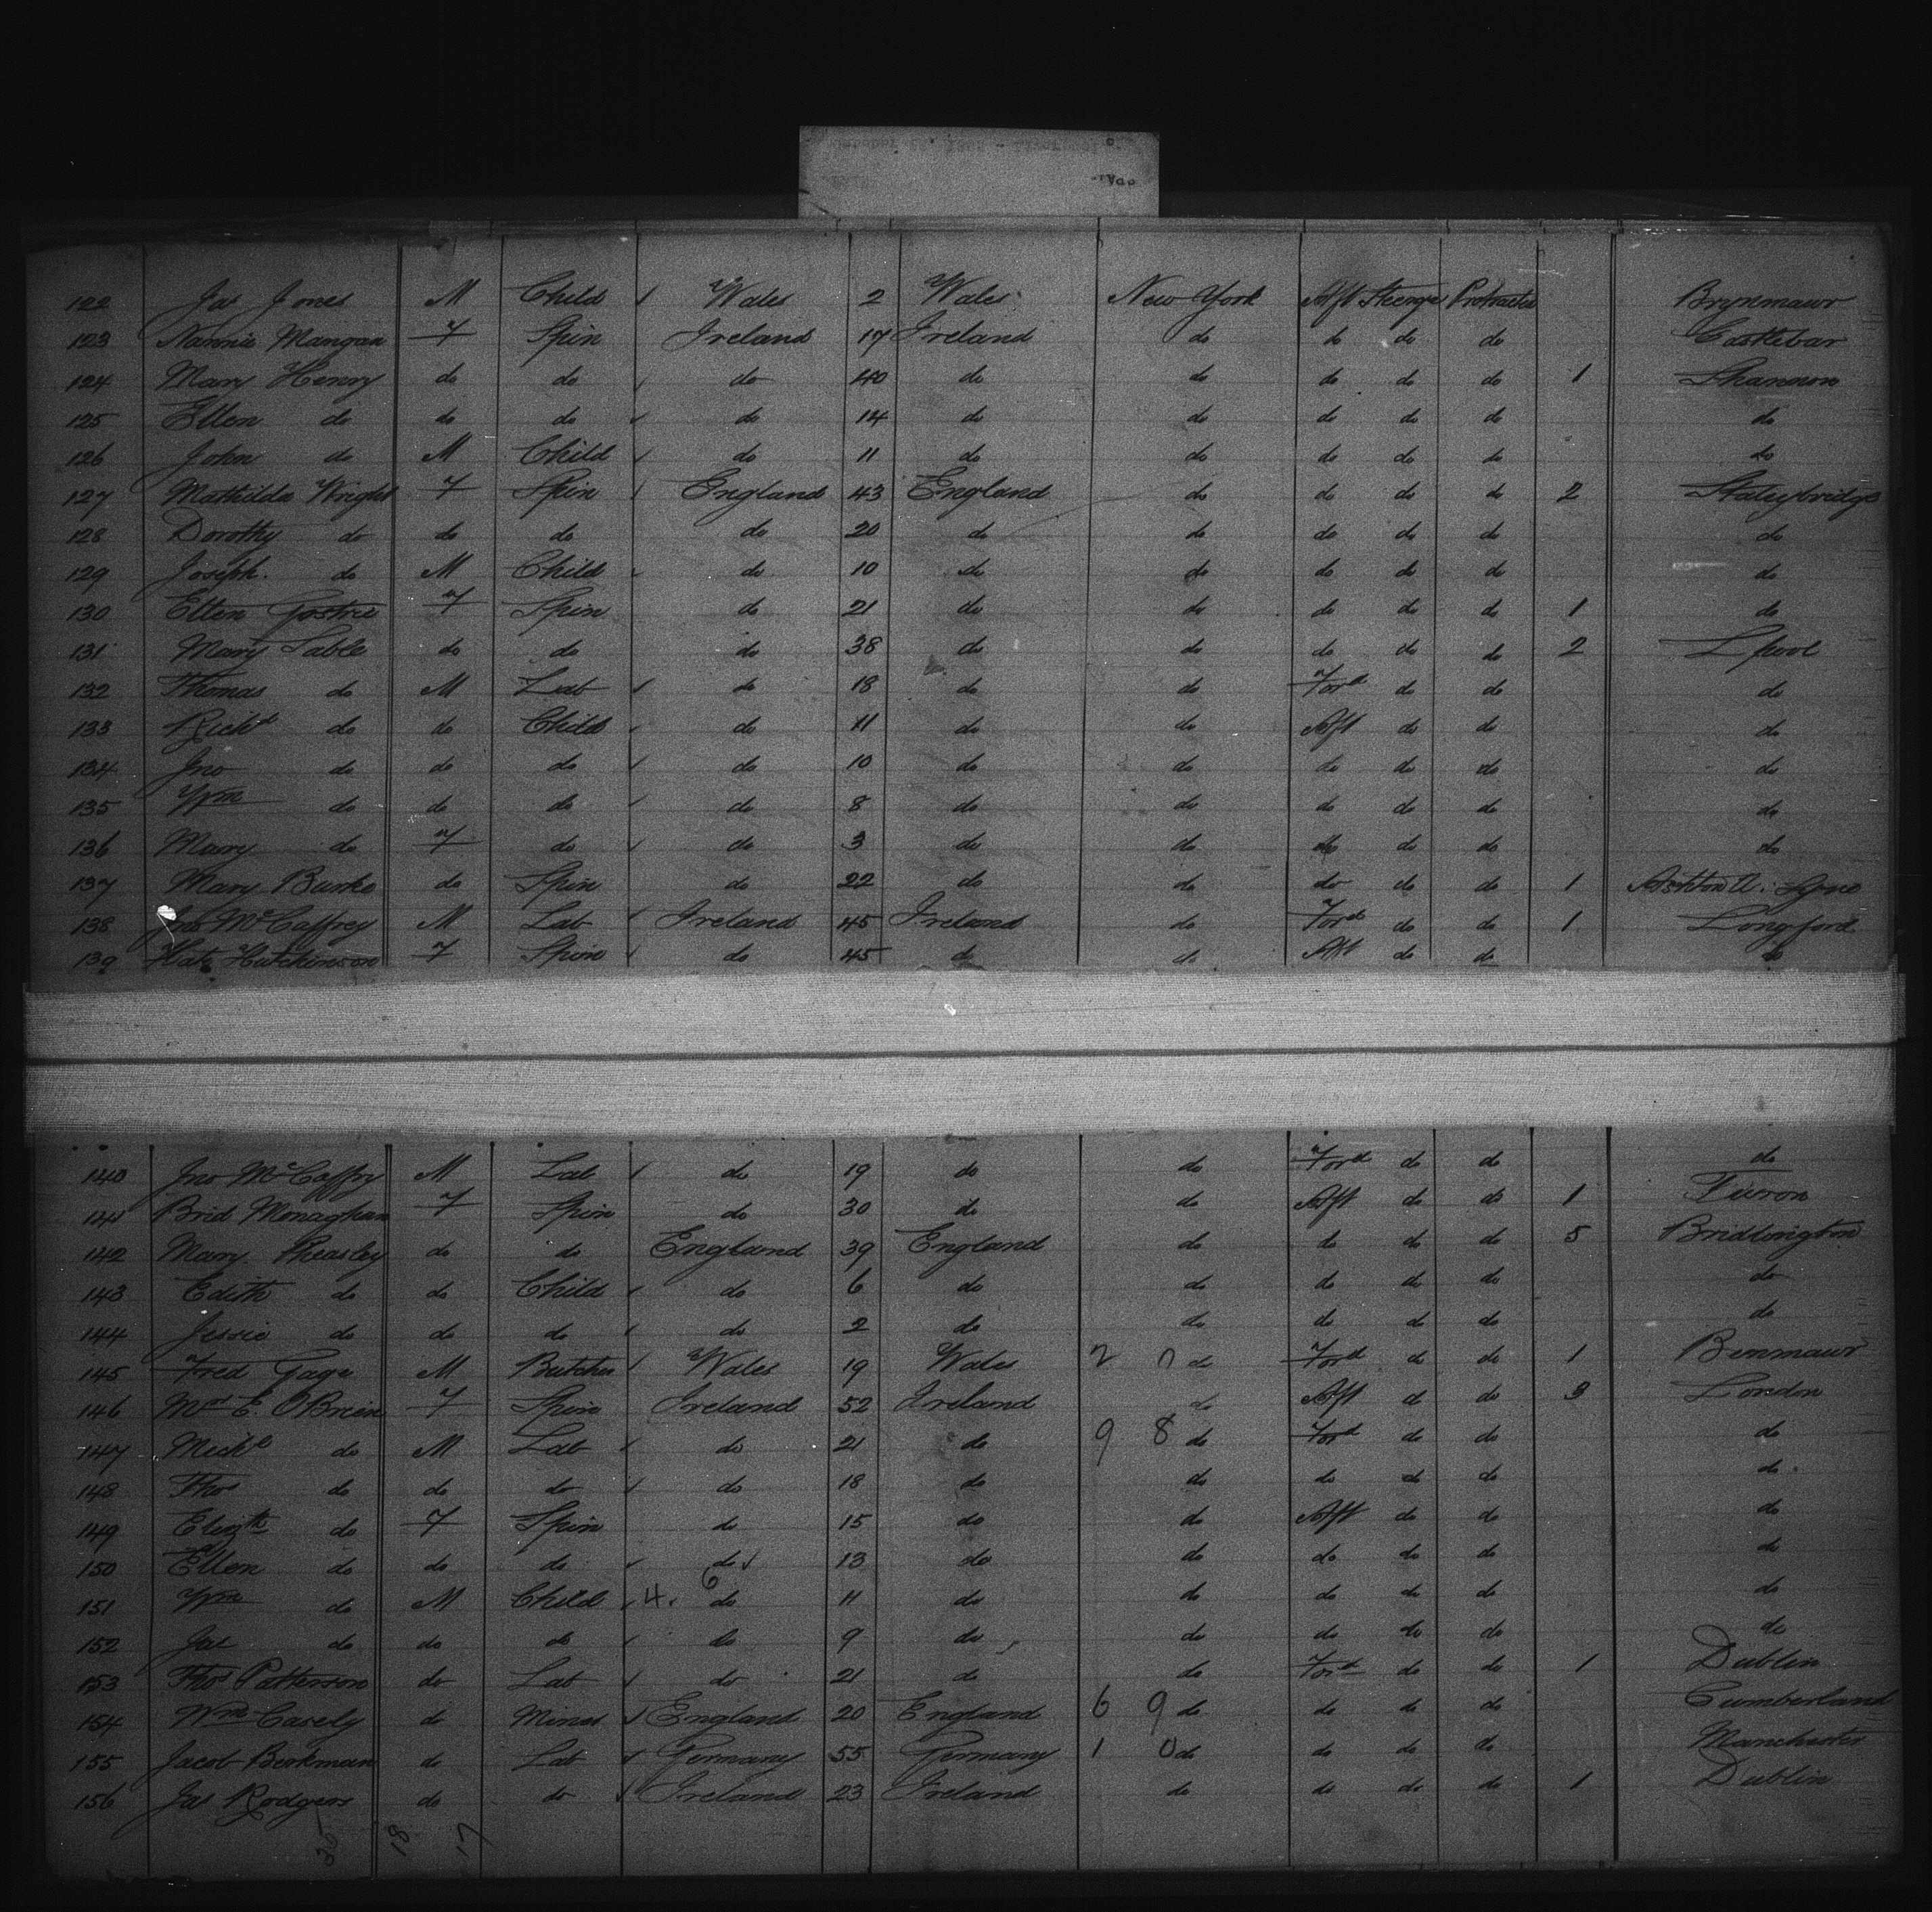 122 Jas Jones M Child Wales 2 Wales New York Aft Steerage Protracted Brynmawr
123 Nannie Mangan F Spin Ireland 17 Ireland do do do do Castlebar
124 Mary Henry do do do 40 do do do do do 1 Shannon
125 Ellen do do do do 14 do do do do do do
126 John do M Child do 11 do do do do do do
127 Mathilda Wright F Spin England 43 England do do do do 2 Staleybridge
128 Dorothy do do do do 20 do do do do do do
129 Joseph. do M Child do 10 do do do do do do
130 Ellen F Spin do 21 do do do do do 1 do
131 Mary Sable do do do 38 do do do do do 2 L'pool
132 Thomas do M Lab do 18 do do Ford do do do
133 Richd do do Child do 11 do do Aft do do do
134 Jno do do do do 10 do do do do do do
135 Wm do do do do 8 do do do do do do
136 Mary do F do do 3 do do do do do do
137 Mary Burke do Spin do 22 do do do do do 1 Ashton U. Lyne
138 Jno McCaffrey M Lab Ireland 45 Ireland do Ford do do 1 Longford
139 Kate Hutchinson F Spin do 45 do do Aft do do do
140 Jno McCaffry M Lab do 19 do do Ford do do do
141 Brid Monaghan F Spin do 30 do do Aft do do 1
142 Mary Pheasley do do England 39 England do do do do 5 Bridlington
143 Edith do do Child do 6 do do do do do do
144 Jessie do do do do 2 do do do do do do
145 Fred Gage M Butcher Wales 19 Wales 2 0 do Ford do do 1 Benmawr
146 Mrs E. OBrien F Spin Ireland 52 Ireland do Aft do do 3 London
147 Michl do M Lab do 21 do 9 8 do Ford do do do
148 Thos do do do do 18 do do do do do do
149 Elizth do F Spin do 15 do do Aft do do do
150 Ellen do do do do 13 do do do do do do
151 Wm do M Child 4. 6 do 11 do do do do do do
152 Jas do do do do 9 do do do do do do
153 Thos Patterson do Lab do 21 do do Ford do do 1 Dublin
154 Wm Casely do Miner England 20 England 6 9 do do do do Cumberland
155 Jacob Berkman do Lab Germany 55 Germany 1 0 do do do do Manchester
156 Jas Rodgers do do Ireland 23 Ireland do do do do 1 Dublin
35 18 17